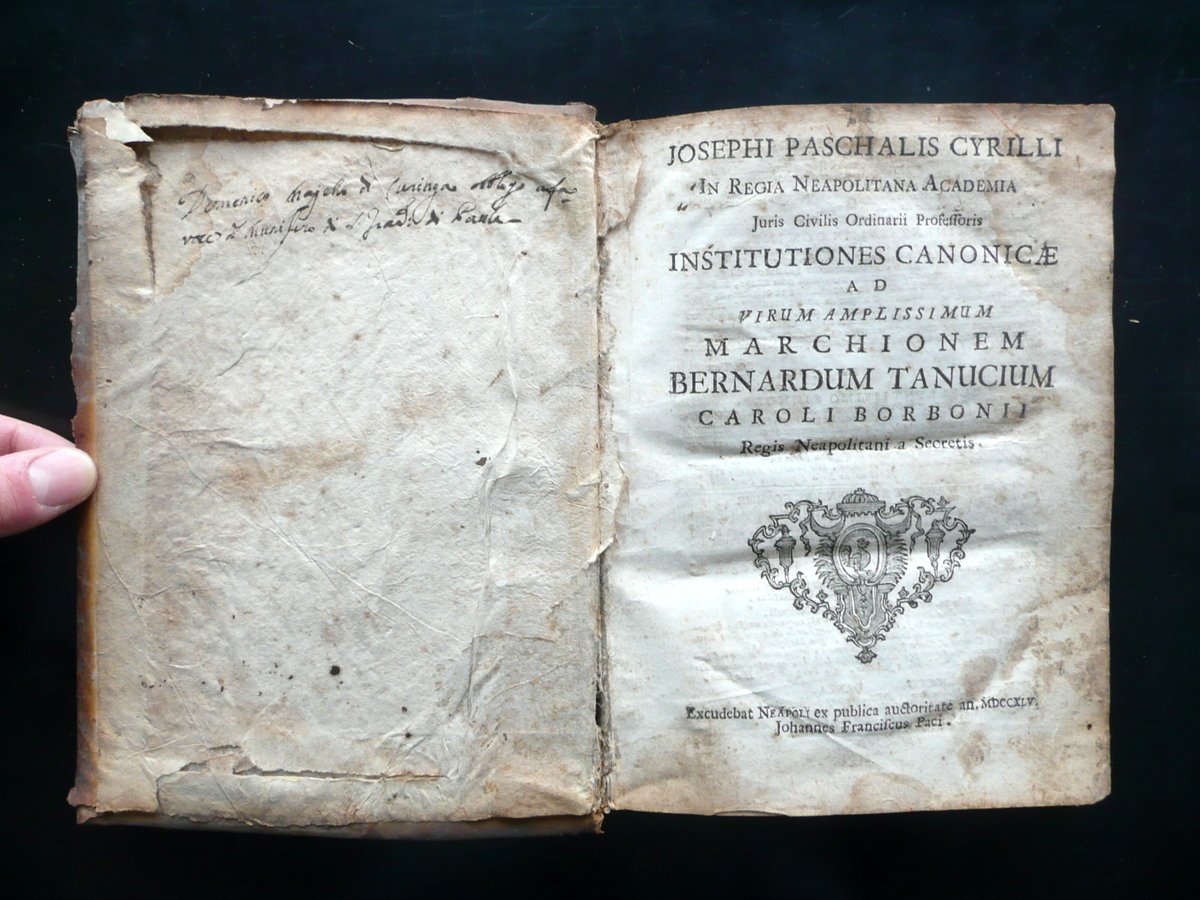 Domenico di Curinga
di di Paula
JOSEPHI PASCHALIS CYRILLI
IN REGIA NEAPOLITANA ACADEMIA
Juris Civilis Ordinarii Profeſſoris
INSTITUTIONES CANONICÆ
AD
VIRUM AMPLISSIMUM
MARCHIONEM
BERNARDUM TANUCIUM
CAROLI BORBONII
Regis Neapolitani a Secretis.
Excudebat NEAPOLI ex publica auctoritate an. MDCCXLV.
Johannes Franciſcus Paci.